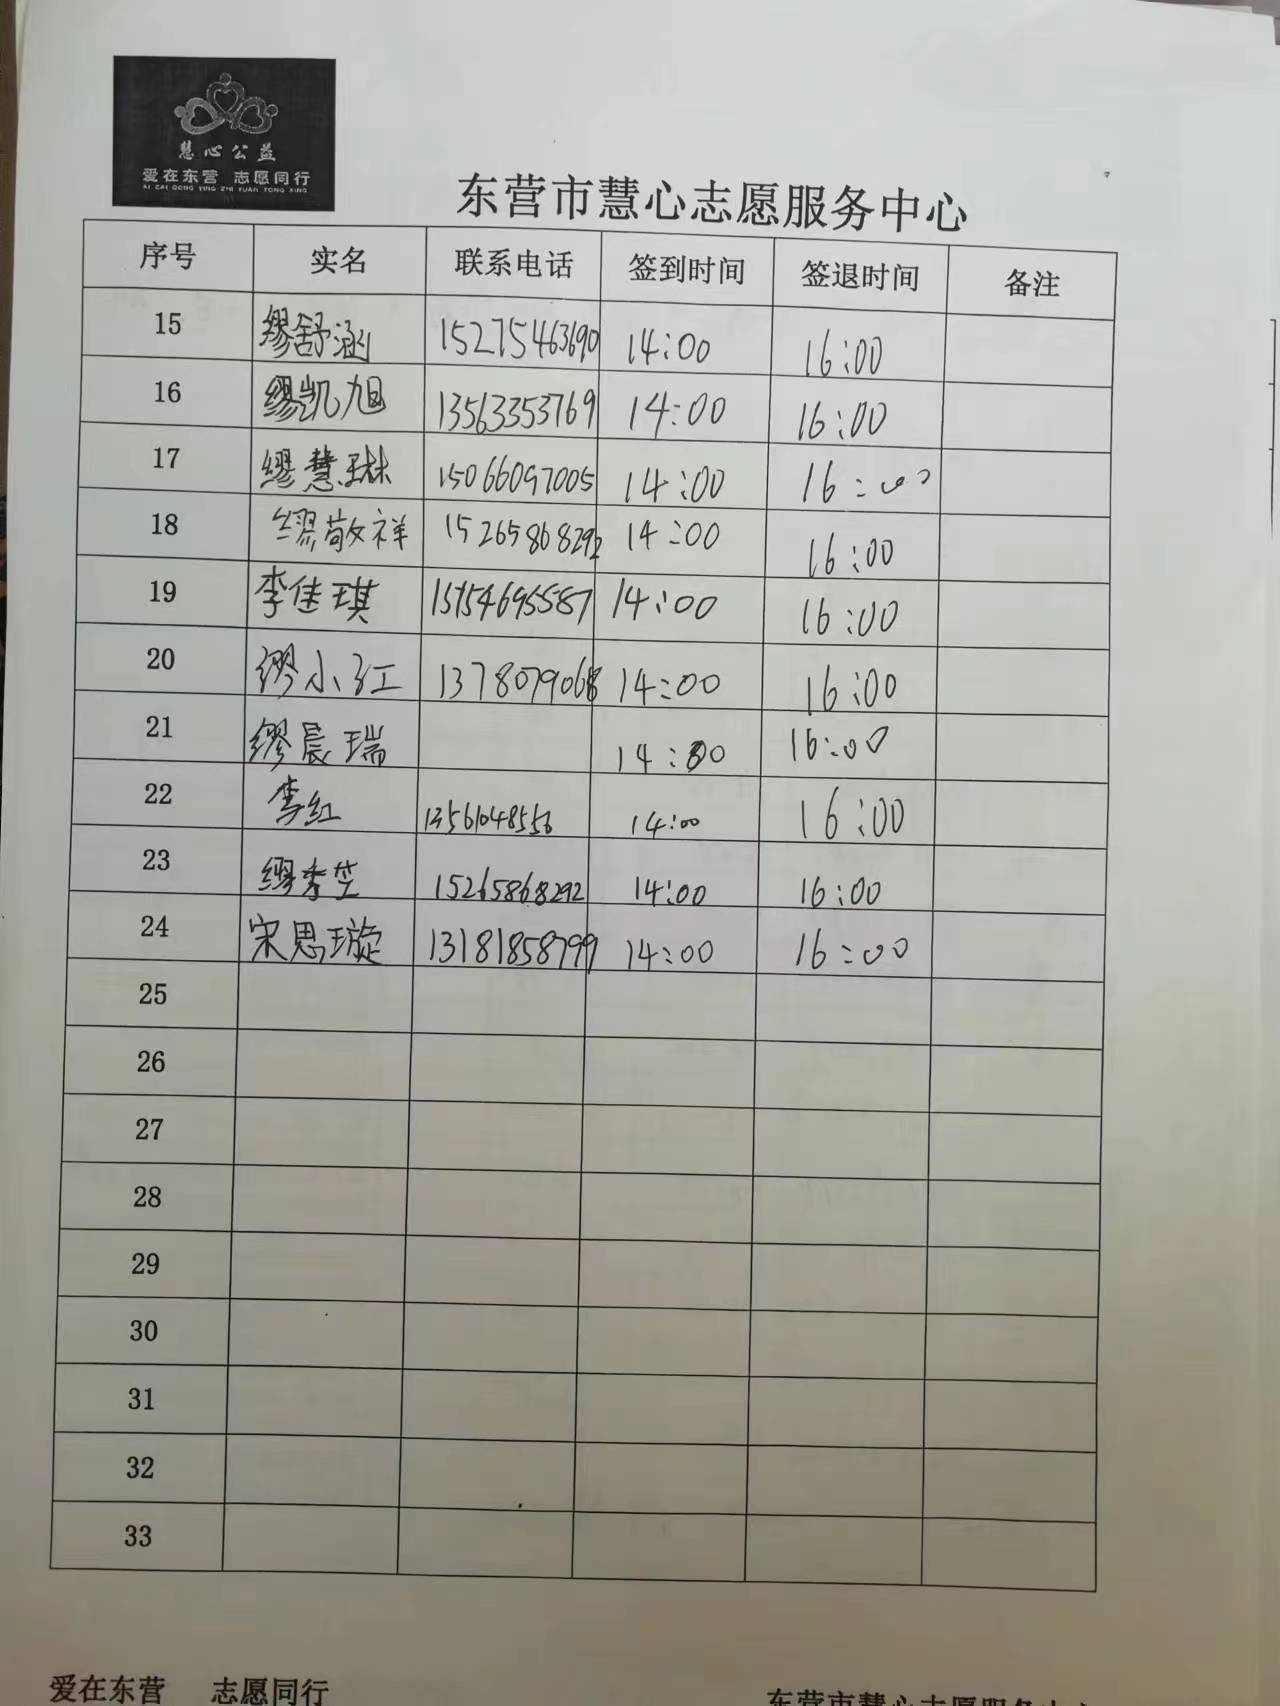 慧心公益
爱在东营 志愿同行
AI ZAI DONG YING ZHI YUAN TONG XING
东营市慧心志愿服务中心
序号 实名 联系电话 签到时间 签退时间 备注
15 缪舒涵 15275463690 14:00 16:00
16 缪凯旭 13563353769 14:00 16:00
17 缪慧琳 15066097005 14:00 16:00
18 缪敬祥 15265868292 14:00 16:00
19 李佳琪 15754695587 14:00 16:00
20 缪小红 1378079068 14:00 16:00
21 缪晨瑞 14:00 16:00
22 李红 13561048556 14:00 16:00
23 缪秀芝 15265868292 14:00 16:00
24 宋思璇 13181858799 14:00 16:00
25
26
27
28
29
30
31
32
33
爱在东营 志愿同行
东营市慧心志愿服务中心